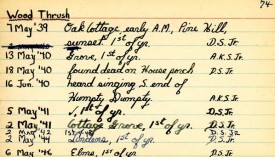 74-
Wood Thrush
7 May '39 Oak Cottage, early A.M., Pine Hill,
sunset 1st of yr. D.S. Jr.
13 May '40 Grove, 1st of yr. A.K.S. Jr.
18 May '40 found dead on House porch D.S. Jr.
16 Jun. '40 heard singing S. end of
Humpty Dumpty A.K.S. Jr.
5 May '41 V, 1st of yr. D.S. Jr.
2 May '41 Cottage Grove, 1st of yr. D.S. Jr.
2 May '42 1st of yr. D.S. Jr.
2 May '44 Lindens, 1st of yr. D.S. Jr.
6 May '46 Elms, 1st of yr. D.S. Jr.